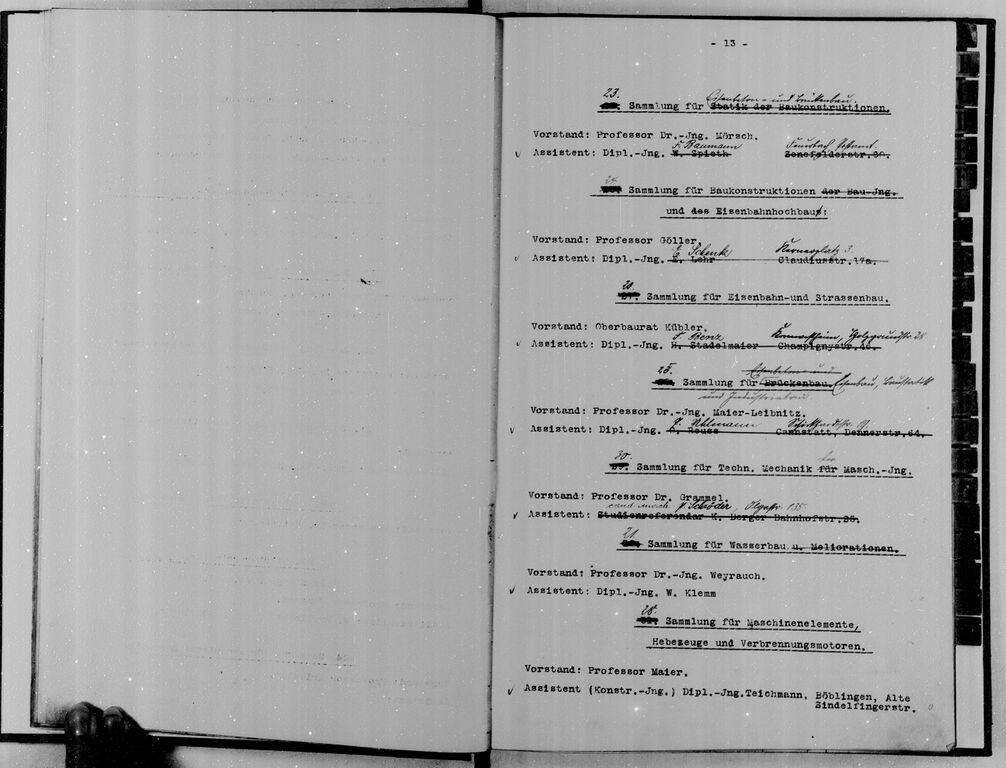 - 13 -
23.
Eisenbeton- und Brückenbau.
Sammlung für Statik der Baukonstruktionen.
Vorstand: Professor Dr.-Jng. Mörsch.
F. Baumann Feuerbach, Postamt.
Assistent: Dipl.-Jng. W. Spieth Senefelderstr.
24.
Sammlung für Baukonstruktionen der Bau-Jng.
und des Eisenbahnhochbau:
Vorstand: Professor Göller.
Schenk 3.
Assistent: Dipl.-Jng. E. Lohr Claudiusstr.17a.
Sammlung für Eisenbahn-und Strassenbau.
Vorstand: Oberbaurat Kübler.
Benz Kornwestheim,
Assistent: Dipl.-Jng. H. Stadelmaier Champignystr.
Eisenbeton- und
25.
Sammlung für Brückenbau. Eisenbau, Baustatik
und Industriebau.
Vorstand: Professor Dr.-Jng. Maier-Leibnitz.
Uhlmann
Assistent: Dipl.-Jng. Reuss Cannstatt, Dennerstr.64.
30. der
Sammlung für Techn. Mechanik für Masch.-Jng.
Vorstand: Professor Dr. Grammel.
cand. mach. Schöder, Olgastr. 135.
Assistent: Studienreferendar K. Berger Bahnhofstr.25.
21.
Sammlung für Wasserbau u. Meliorationen.
Vorstand: Professor Dr.-Jng. Weyrauch.
Assistent: Dipl.-Jng. W. Klemm
28.
Sammlung für Maschinenelemente,
Hebezeuge und Verbrennungsmotoren.
Vorstand: Professor Maier.
Assistent (Konstr.-Jng.) Dipl.-Jng.Teichmann, Böblingen, Alte
Sindelfingerstr.